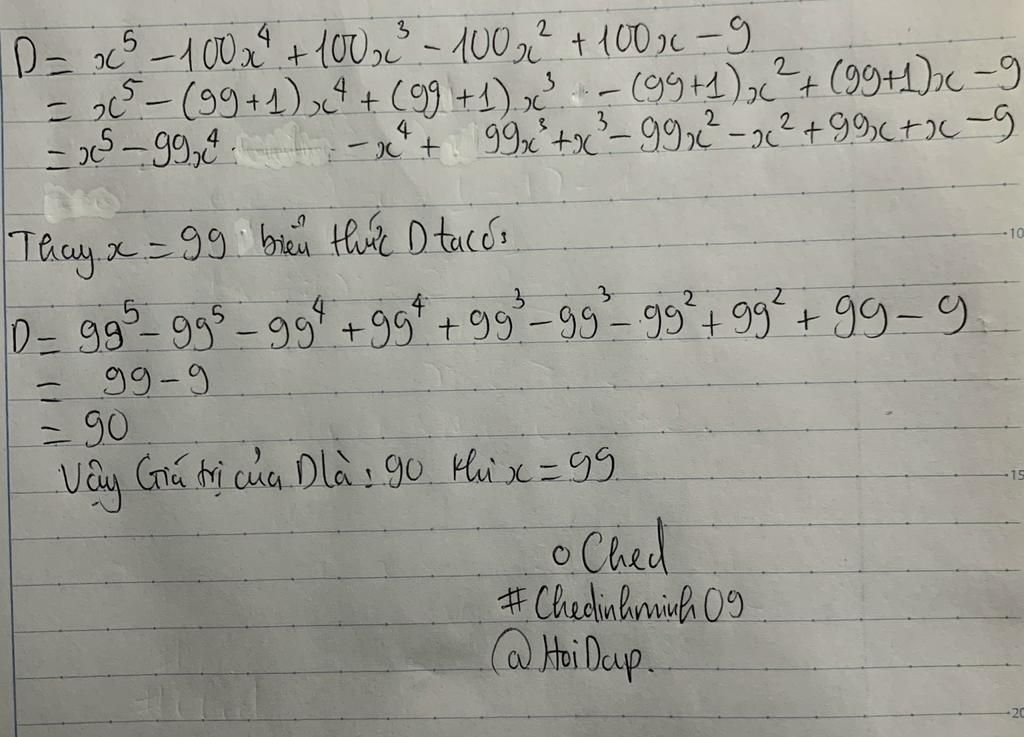 D = x⁵ - 100x⁴ + 100x³ - 100x² + 100x - 9
= x⁵ - (99+1)x⁴ + (99+1)x³ - (99+1)x² + (99+1)x - 9
= x⁵ - 99x⁴ - x⁴ + 99x³ + x³ - 99x² - x² + 99x + x - 9
Thay x = 99 biểu thức D ta có:
10
D = 99⁵ - 99⁵ - 99⁴ + 99⁴ + 99³ - 99³ - 99² + 99² + 99 - 9
= 99 - 9
= 90
Vậy Giá trị của D là: 90 khi x = 99
15
o Ched
#Chedinhminh09
@HoiDap.
20